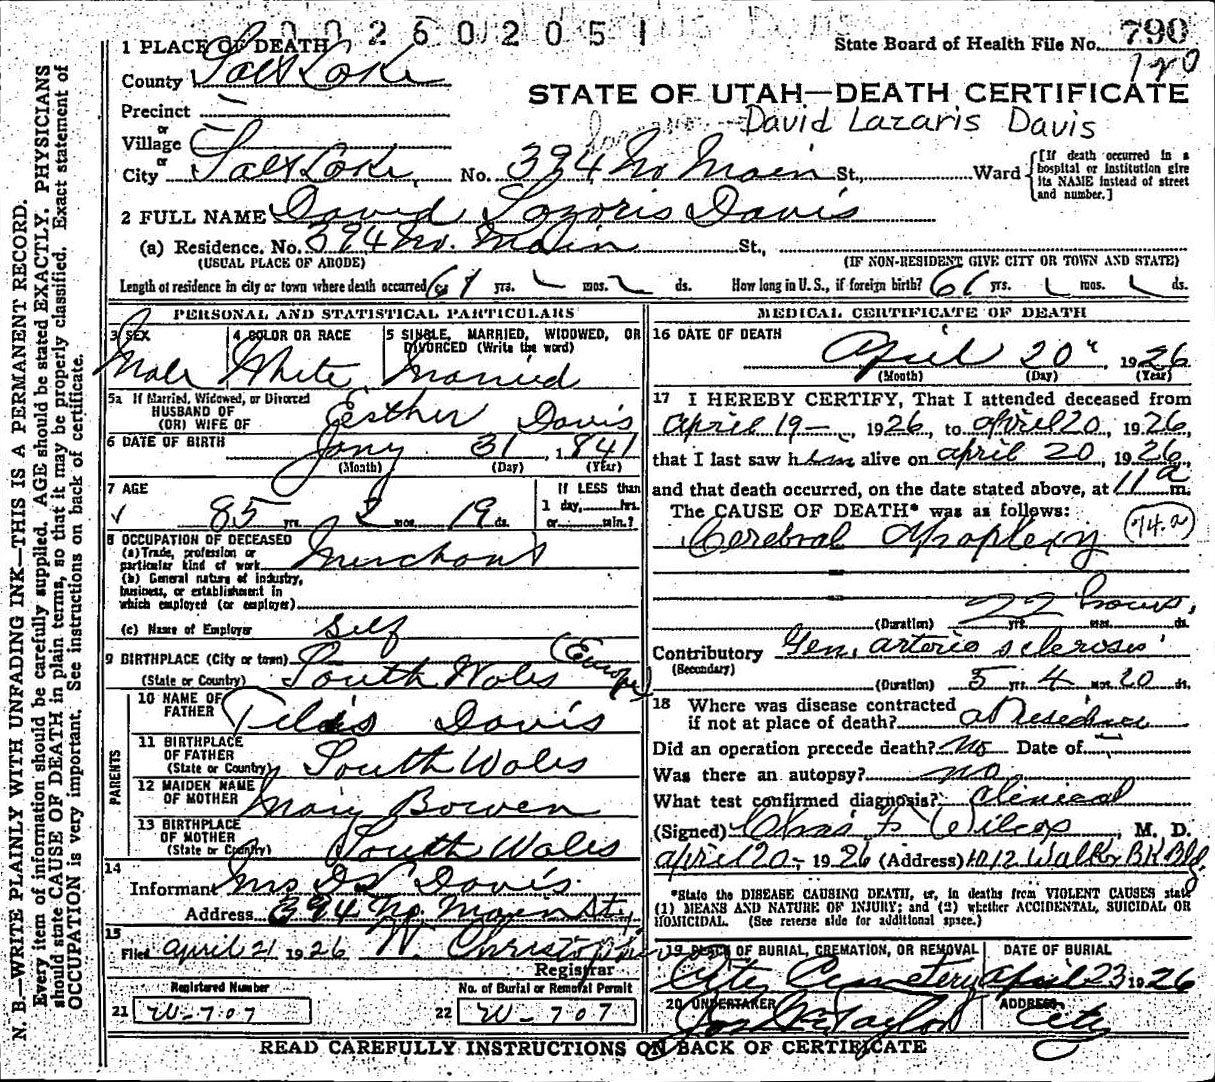 0 0 2 6 0 2 0 5 1
State Board of Health File No. 790
120
1 PLACE OF DEATH
County Salt Lake
STATE OF UTAH—DEATH CERTIFICATE
Precinct —
David Lazaris Davis
or
Village
or
City Salt Lake, No. 394 No Main St., Ward
[If death occurred in a hospital or institution give its NAME instead of street and number.]
2 FULL NAME David Lazaris Davis
(a) Residence. No. 394 No. Main St.,
(USUAL PLACE OF ABODE) (IF NON-RESIDENT GIVE CITY OR TOWN AND STATE)
Length of residence in city or town where death occurred yrs. mos. ds. How long in U. S., if foreign birth? yrs. mos. ds.
PERSONAL AND STATISTICAL PARTICULARS
3 SEX 4 COLOR OR RACE 5 SINGLE, MARRIED, WIDOWED, OR DIVORCED (Write the word)
Male White Married
5a If Married, Widowed, or Divorced
HUSBAND OF
(OR) WIFE OF Esther Davis
6 DATE OF BIRTH Jany 31, 1841
(Month) (Day) (Year)
7 AGE
85 yrs. 2 mos. 19 ds.
If LESS than
1 day, hrs.
or min.?
8 OCCUPATION OF DECEASED
(a) Trade, profession or
particular kind of work Merchant
(b) General nature of industry,
business, or establishment in
which employed (or employer)
(c) Name of Employer self
9 BIRTHPLACE (City or town) (Europe)
(State or Country) South Wales
PARENTS
10 NAME OF
FATHER Davis
11 BIRTHPLACE
OF FATHER
(State or Country) South Wales
12 MAIDEN NAME
OF MOTHER Mary Bowen
13 BIRTHPLACE
OF MOTHER
(State or Country) South Wales
14
Informant Mrs D L Davis
Address 394 No Main St,
15
Filed april 21 1926 W. Christopherson
Registrar
Registered Number No. of Burial or Removal Permit
21 W-707 22 W-707
MEDICAL CERTIFICATE OF DEATH
16 DATE OF DEATH
April 20" 1926
(Month) (Day) (Year)
17 I HEREBY CERTIFY, That I attended deceased from
April 19—, 1926, to april 20, 1926,
that I last saw him alive on april 20, 1926,
and that death occurred, on the date stated above, at 11 a m.
The CAUSE OF DEATH* was as follows:
Cerebral Apoplexy (74.a)
22 hours,
(Duration) yrs. mos. ds.
Contributory Gen. arterio sclerosis
(Secondary)
(Duration) 5 yrs. 4 mos. 20 ds.
18 Where was disease contracted
if not at place of death? at Residence
Did an operation precede death? No Date of —
Was there an autopsy? no
What test confirmed diagnosis? Clinical
(Signed) Chas F Wilcox, M. D.
april 20- 1926 (Address) 1012 Walker Bk Bldg
*State the DISEASE CAUSING DEATH, or, in deaths from VIOLENT CAUSES state
(1) MEANS AND NATURE OF INJURY; and (2) whether ACCIDENTAL, SUICIDAL OR
HOMICIDAL. (See reverse side for additional space.)
19 PLACE OF BURIAL, CREMATION, OR REMOVAL DATE OF BURIAL
City Cemetery April 23 1926
20 UNDERTAKER ADDRESS
Taylor City
READ CAREFULLY INSTRUCTIONS ON BACK OF CERTIFICATE
N. B.—WRITE PLAINLY WITH UNFADING INK—THIS IS A PERMANENT RECORD.
Every item of information should be carefully supplied. AGE should be stated EXACTLY. PHYSICIANS
should state CAUSE OF DEATH in plain terms, so that it may be properly classified. Exact statement of
OCCUPATION is very important. See instructions on back of certificate.